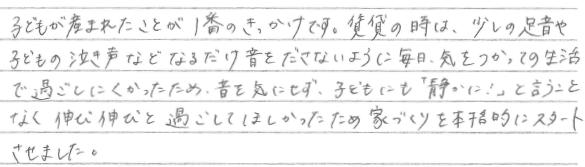 子どもが産まれたことが1番のきっかけです。賃貸の時は、少しの足音や
子どもの泣き声などなるだけ音をださないように毎日、気をつかっての生活
で過ごしにくかったため、音を気にせず、子どもにも「静かに！」と言うこと
なく伸び伸びと過ごしてほしかったため家づくりを本格的にスタート
させました。